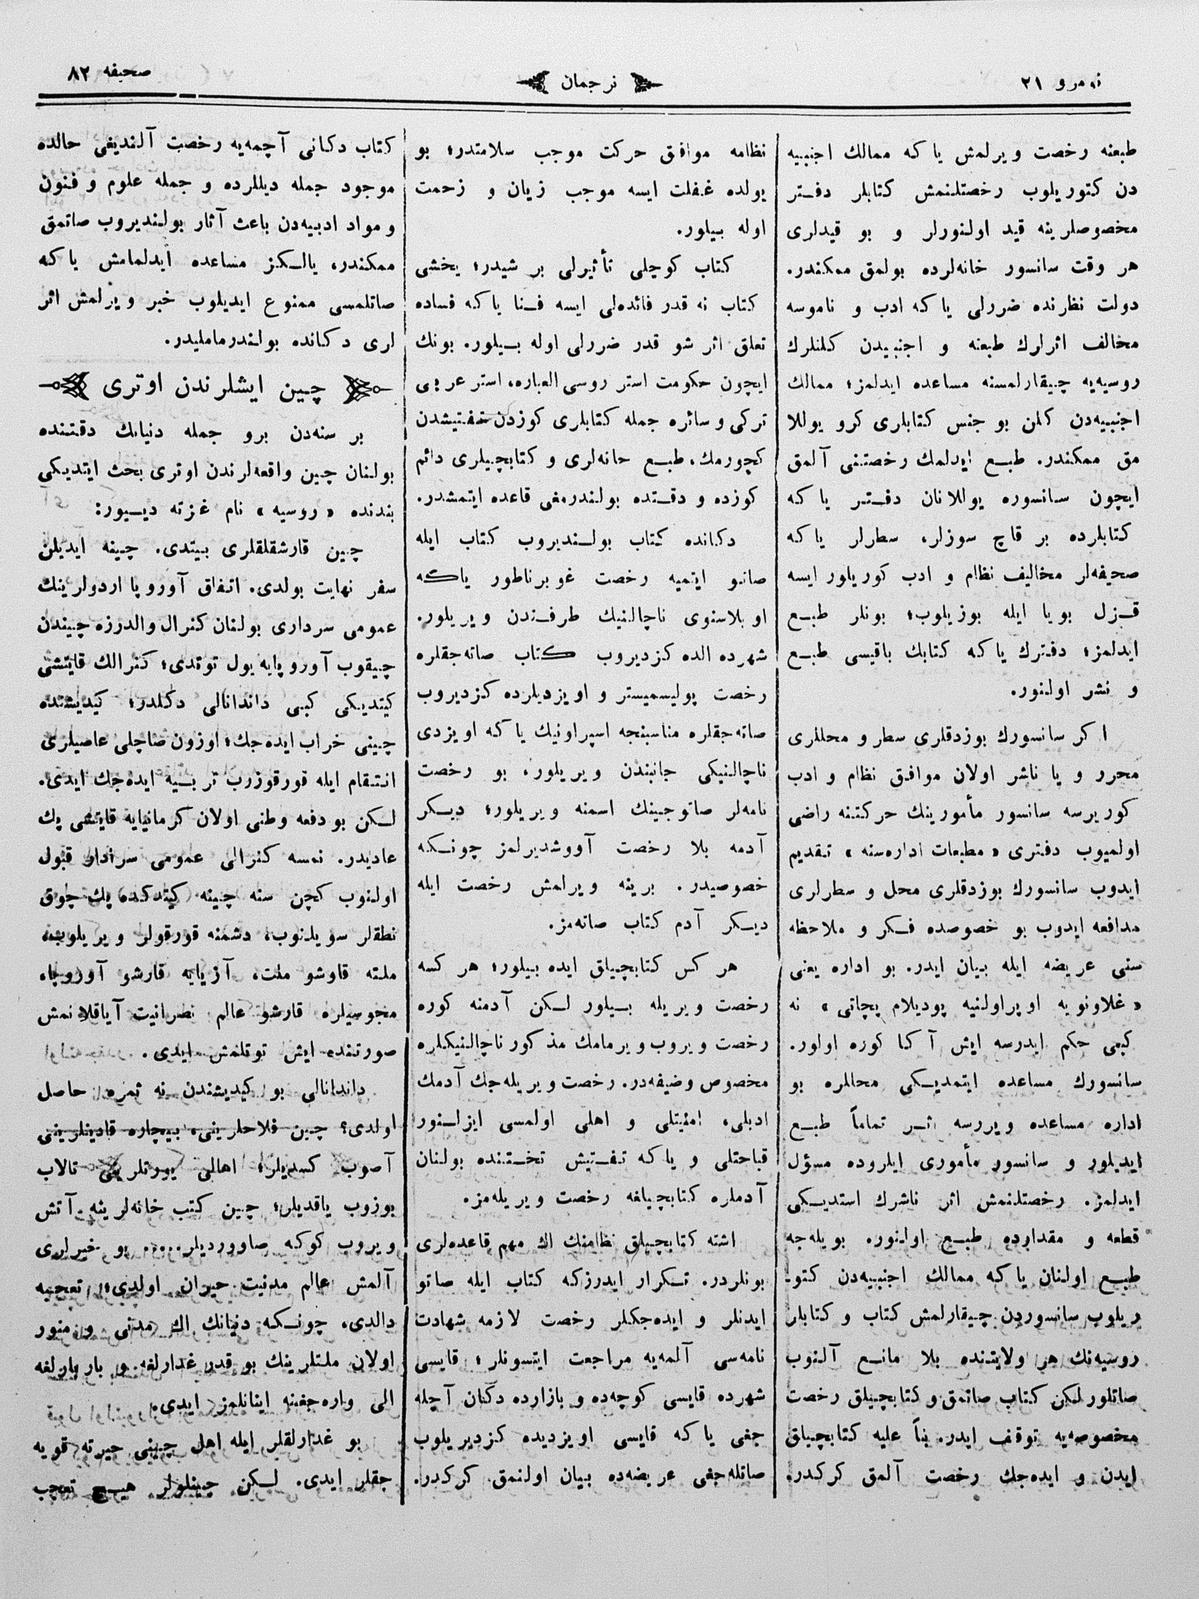 نومرو ٢١
ترجمان
صحيفه ٨٢
طبعنه رخصت ويرلمش ياكه ممالك اجنبيه
دن كتوريلوب رخصتلنمش كتابلر دفتر
مخصوصلرينه قيد اولنورلر و بو قيدلرى
هر وقت سانسور خانه‌لرده بولمق ممكندر.
دولت نظرنده ضررلى ياكه ادب و ناموسه
مخالف اثرلرك طبعنه و اجنبيدن كلنلرك
روسيه‌يه چيقارلمسنه مساعده ايدلمز؛ ممالك
اجنبيه‌دن كلن بو جنس كتابلرى كرو يوللا
مق ممكندر. طبع ايدلمك رخصتنى آلمق
ايچون سانسوره يوللانان دفتر ياكه
كتابلرده بر قاچ سوزلر، سطرلر ياكه
صحيفه‌لر مخاليف نظام و ادب كوريلور ايسه
قزل بويا ايله بوزيلوب؛ بونلر طبع
ايدلمز؛ دفترك ياكه كتابك باقيسى طبع
و نشر اولنور.
اكر سانسورك بوزدقلرى سطر و محللرى
محرر و يا ناشر اولان موافق نظام و ادب
كوريرسه سانسور مأمورينك حركتنه راضى
اولميوب دفترى «مطبعات اداره‌سنه» تقديم
ايدوب سانسورك بوزدقلرى محل و سطرلرى
مدافعه ايدوب بو خصوصده فكر و ملاحظه
سنى عريضه ايله بيان ايدر. بو اداره يعنى
«غلاونويه اوپراولنيه پوديلام پچاتى» نه
كبى حكم ايدرسه ايش آكا كوره اولور.
سانسورك مساعده ايتمديكى محللره بو
اداره مساعده ويررسه اثر تماماً طبع
ايديلور و سانسور مأمورى ايلروده مسؤل
ايدلمز. رخصتلنمش اثر ناشرك استديكى
قطعه و مقدارده طبع اولنور. بويله‌جه
طبع اولنان ياكه ممالك اجنبيه‌دن كتو
ريلوب سانسوردن چيقارلمش كتاب و كتابلر
روسيه‌نك هر ولايتنده بلا مانع آلنوب
صاتلور لكن كتاب صاتمق و كتابچيلق رخصت
مخصوصه‌يه توقف ايدر. بناً عليه كتابچيلق
ايدن و ايده‌جك رخصت آلمق كركدر.
نظامه موافق حركت موجب سلامتدر؛ بو
يولده غفلت ايسه موجب زيان و زحمت
اوله بيلور.
كتاب كوچلى تأثيرلى بر شيدر؛ يخشى
كتاب نه قدر فائده‌لى ايسه فنا ياكه فساده
تعلق اثر شو قدر ضررلى اوله بيلور. بونك
ايچون حكومت استر روسى العباره، استر عربى
تركى و سائره جمله كتابلرى كوزدن تفتيشدن
كچورمك، طبع خانه‌لرى و كتابچيلرى دائم
كوزده و دقتده بولندرمغى قاعده ايتمشدر.
دكانده كتاب بولنديروب كتاب ايله
صاتو ايتميه رخصت غوبرناطور ياكه
اوبلاستوى ناچالنيك طرفندن ويريلور.
شهرده الده كزديروب كتاب صاته‌جقلره
رخصت پوليسميستر و اويزديلرده كزديروب
صاته‌جقلره مناسبنجه اسپراونيك ياكه اويزدى
ناچالنيكى جانبندن ويريلور، بو رخصت
نامه‌لر صاتوجينك اسمنه ويريلور؛ ديكر
آدمه بلا رخصت آووشديرلمز چونكه
خصوصيدر. برينه ويرلمش رخصت ايله
ديكر آدم كتاب صاته‌مز.
هر كس كتابچيلق ايده بيلور؛ هر كسه
رخصت ويريله بيلور لكن آدمنه كوره
رخصت ويروب ويرمامك مذكور ناچالنيكلره
مخصوص وضيفه‌در. رخصت ويريله‌جك آدمك
ادبلى، امنيتلى و اهلى اولمسى ايزلنور
قباحتلى و ياكه تفتيش تحتنده بولنان
آدملره كتابچيلغه رخصت ويريله‌مز.
اشته كتابچيلق نظامنك اك مهم قاعده‌لرى
بونلردر. تكرار ايدرزكه كتاب ايله صاتو
ايدنلر و ايده‌جكلر رخصت لازمه شهادت
نامه‌سى آلمه‌يه مراجعت ايتسونلر؛ قايسى
شهرده قايسى كوچه‌ده و بازارده دكان آچله
جغى ياكه قايسى اويزديده كزديريلوب
صاتله‌جغى عريضه‌ده بيان اولنمق كركدر.
كتاب دكانى آچمه‌يه رخصت آلنديغى حالده
موجود جمله ديللرده و جمله علوم و فنون
و مواد ادبيه‌دن باعث آثار بولنديروب صاتمق
ممكندر، يالكز مساعده ايدلمامش ياكه
صاتلمسى ممنوع ايديلوب خبر ويرلمش اثر
لرى دكانده بولندرماملیدر.
چين ايشلرندن اوترى
بر سنه‌دن برو جمله دنيانك دقتنده
بولنان چين واقعه‌لرندن اوترى بحث ايتديكى
بندنده «روسيه» نام غزته ديیور:
چين قارشقلقلرى بيتدى. چينه ايديلن
سفر نهايت بولدى. اتفاق آوروپا اردولرينك
عمومى سردارى بولنان كنرال والدرزه چيندن
چيقوب آوروپايه يول توتدى؛ كنرالك قايتشى
كيتديكى كبى داندانالى دكلدر؛ كيديشنده
چينى خراب ايده‌جك؛ اوزون صاچلى عاصيلرى
انتقام ايله قورقوزرب تربيه ايده‌جك ايدى.
لكن بو دفعه وطنى اولان كرمانيايه قايتشى پك
عاديدر. نمسه كنرالى عمومى سردار قبول
اولنوب كچن سنه چينه كيتدكده پك چوق
نطقلر سويلنوب، دشمنه قورقولر ويريلوب،
ملته قاوشو ملت، آزيايه قارشو آوروپا،
مجوسيلره قارشو عالم نصرانيت آياقلانمش
صورتنده ايش توتلمش ايدى.
داندانالى بو كيديشندن نه ثمره حاصل
اولدى؟ چين فلاحلرينى، بيچاره قادينلرينى
آصوب كسديلر؛ اهالى يورتلرينى تالاب
بوزوب ياقديلر؛ چين كتب خانه‌لرينه آتش
ويروب كوكه صاوورديلر.... بو خبرلرى
آلمش عالم مدنيت حيران اولدى؛ تعجبه
دالدى، چونكه دنيانك اك مدنى و منور
اولان ملتلرينك بو قدر غدارلغه و باربارلغه
الى واره‌جغنه اينانلمز ايدى.
بو غدارلقلر ايله اهل چينى حيرته قويه
جقلر ايدى. لكن چينلولر هيچ تعجب